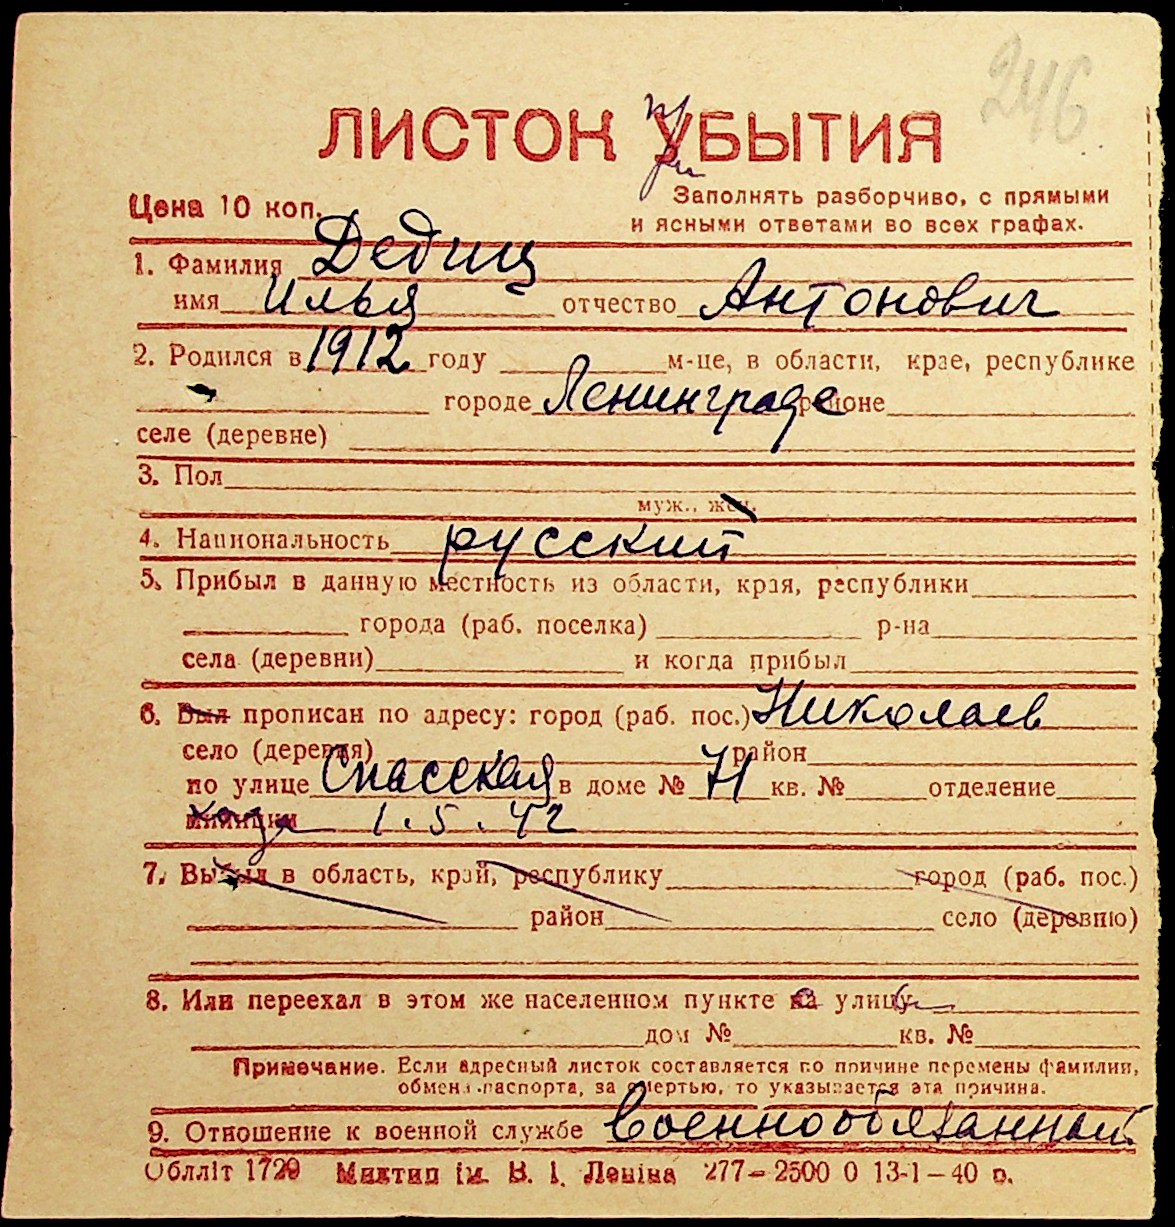 246
ЛИСТОК УБЫТИЯ
при
Цена 10 коп.
Заполнять разборчиво, с прямыми
и ясными ответами во всех графах.
1. Фамилия Дедищ
имя Илья отчество Антонович
2. Родился в 1912 году м-це, в области, крае, республике
городе Ленинграде районе
селе (деревне)
3. Пол
муж., жен.
4. Национальность русский
5. Прибыл в данную местность из области, края, республики
города (раб. поселка) р-на
села (деревни) и когда прибыл
6. Был прописан по адресу: город (раб. пос.) Николаев
село (деревня) район
по улице Спасская в доме № 71 кв. № отделение
милиции когда 1.5.42
7. Выбыл в область, край, республику город (раб. пос.)
район село (деревню)
8. Или переехал в этом же населенном пункте на улицу
дом № кв. №
Примечание. Если адресный листок составляется по причине перемены фамилии,
обмена паспорта, за смертью, то указывается эта причина.
9. Отношение к военной службе военнообязанный
Облліт 1729 Миктип ім. В. І. Леніна 277–2500 0 13-1–40 р.